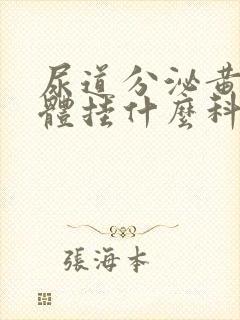 尿道分泌黃
體挂什麼科
張海本